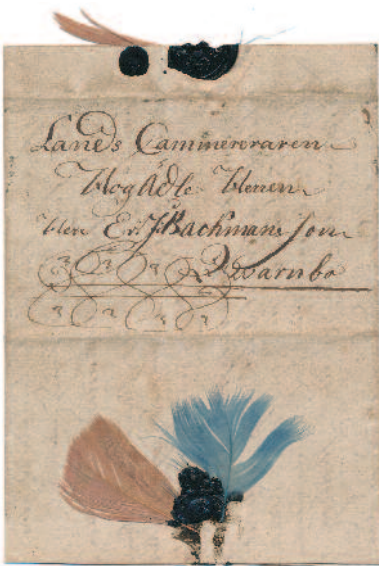 Lands Cammereraren
HögÄdle Herren
Herr Er. J. Bachmanson
Qwarnbo